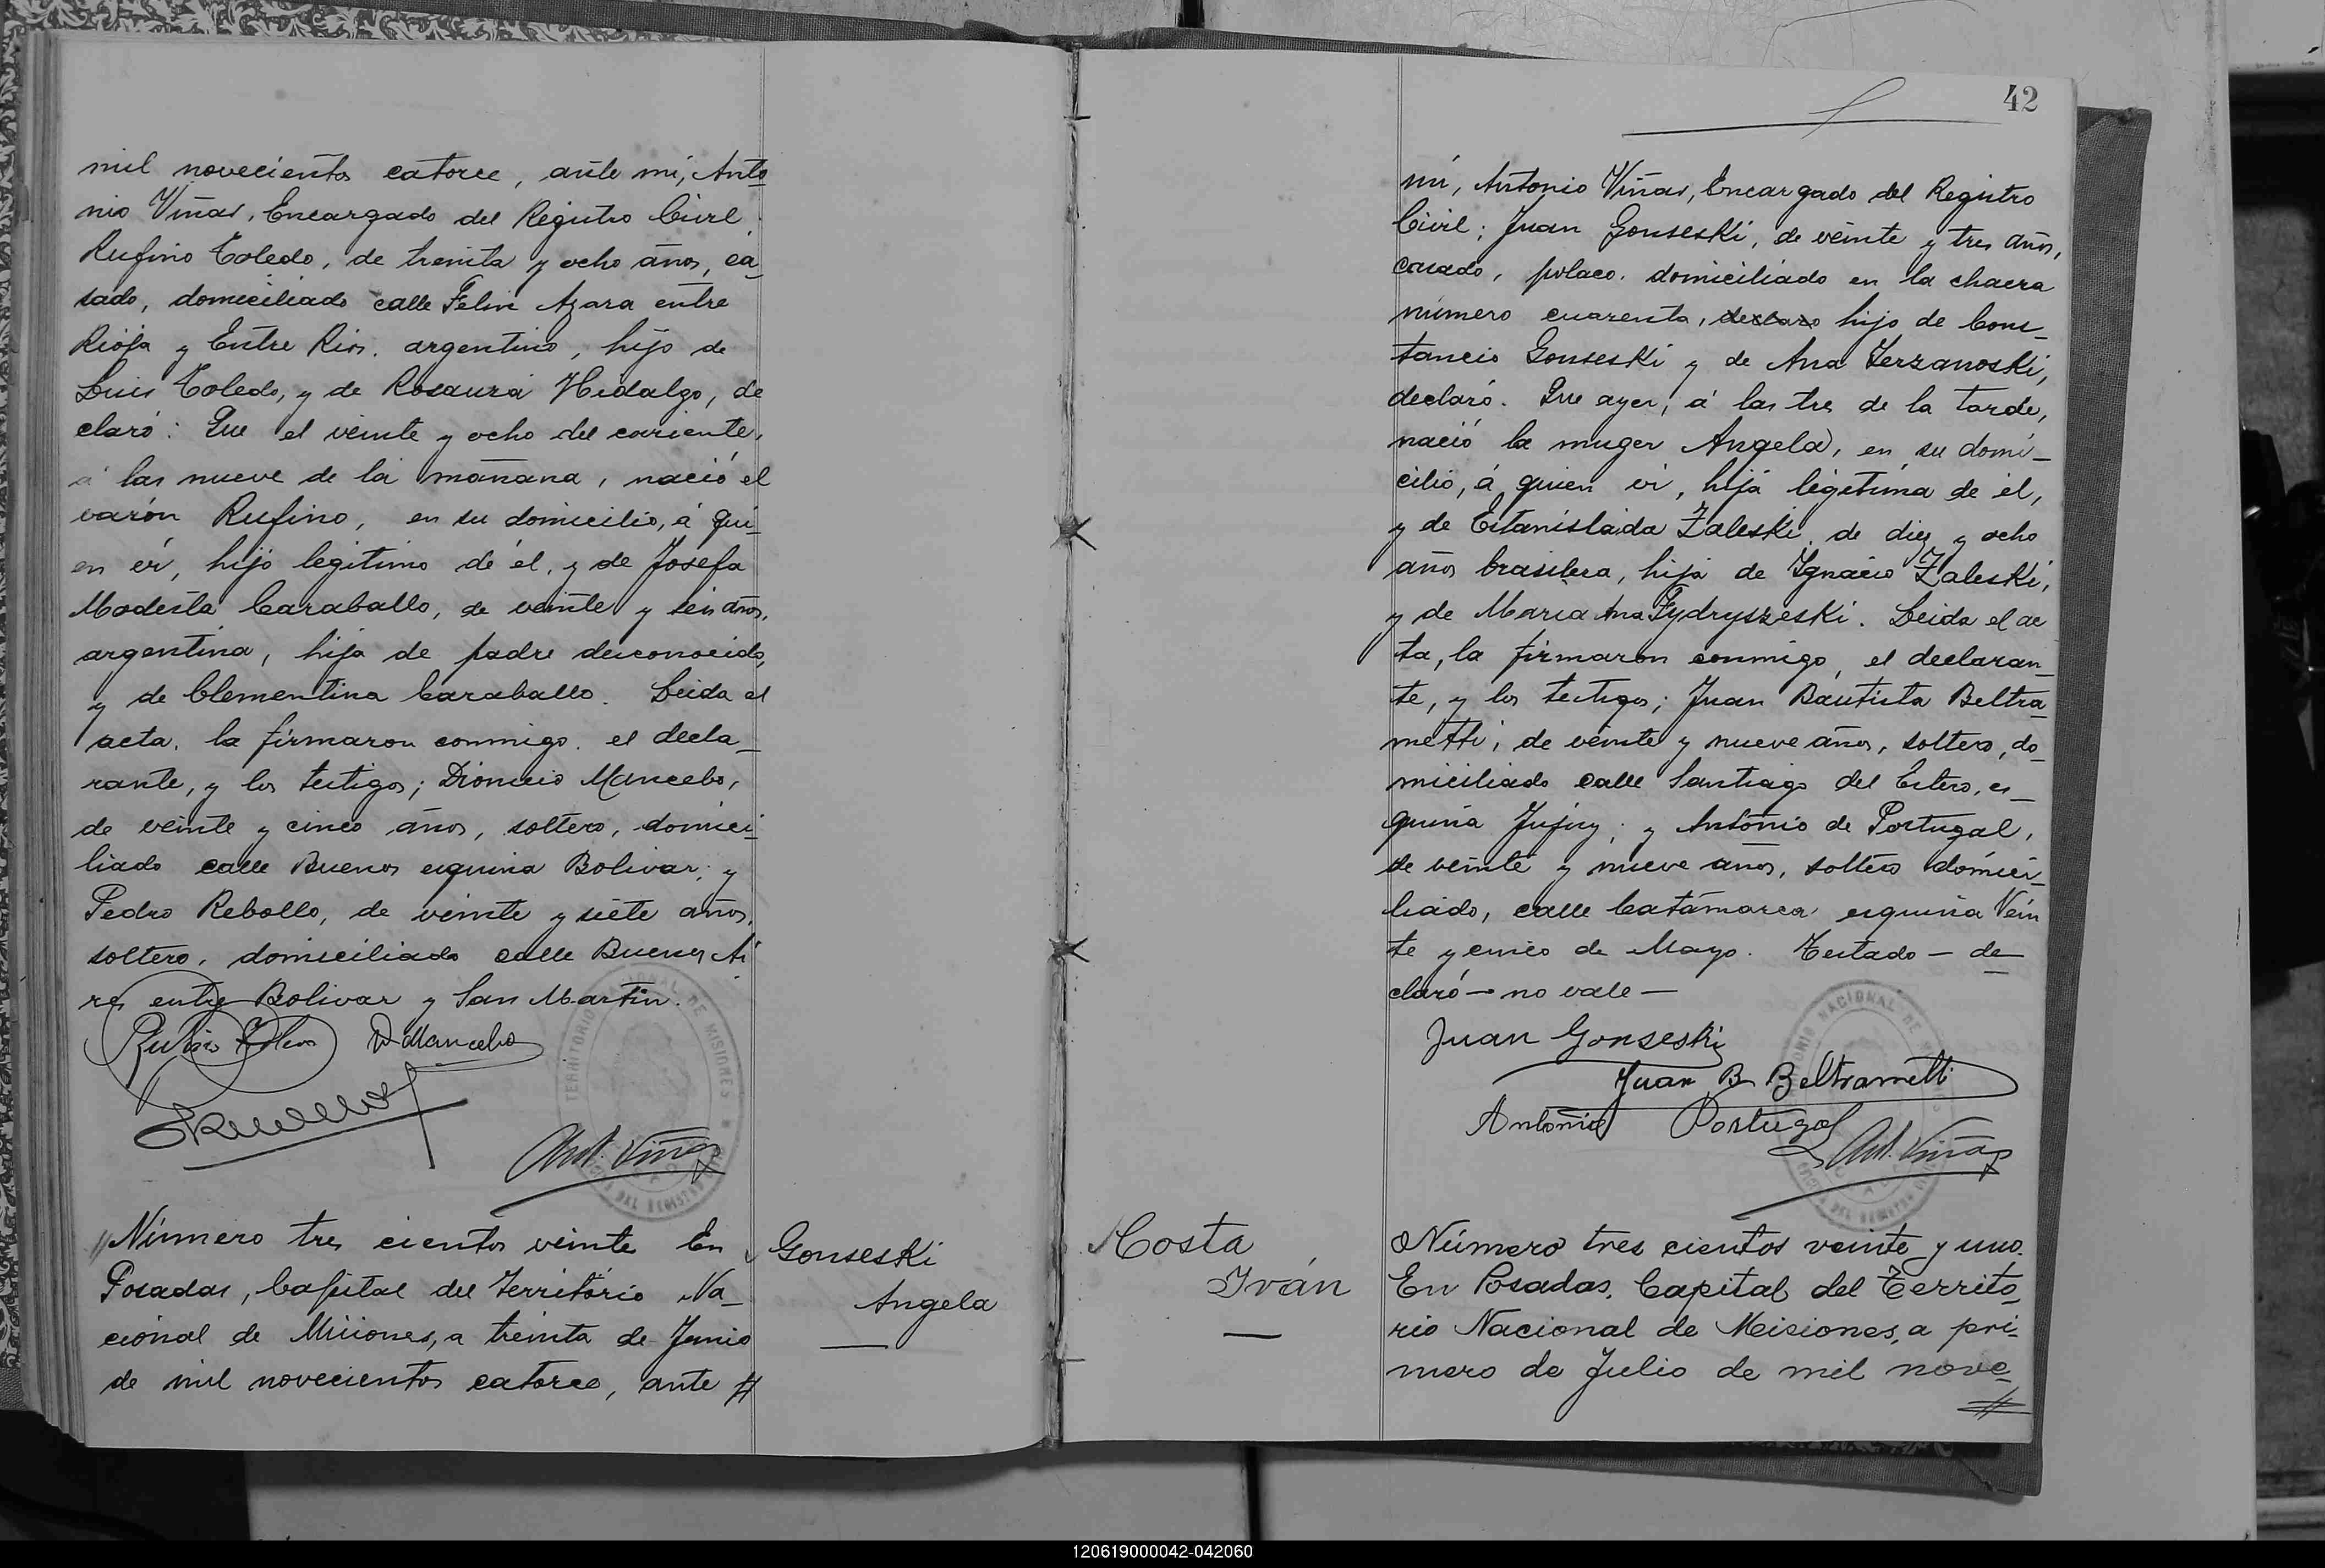 mil novecientos catorce, ante mí, Anto
nio Viñas, Encargado del Registro Civil,
Rufino Toledo, de treinta y ocho años, ca
sado, domiciliado calle Felix Azara entre
Rioja y Entre Rios, argentino, hijo de
Luis Toledo, y de Rosaura Hidalgo, de
claró: Que el veinte y ocho del coriente,
á las nueve de la mañana, nació el
varón Rufino, en su domicilio, á qui_
en ví, hijo legítimo de él, y de Josefa
Modesta Caraballo, de veinte y seis años,
argentina, hija de padre desconocido,
y de Clementina Caraballo. Leida el
acta, la firmaron conmigo, el decla_
rante, y los testigos; Dionicio Mancebo,
de veinte y cinco años, soltero, domici_
liado calle Buenos esquina Bolivar; y
Pedro Rebollo, de veinte y siete años,
soltero, domiciliado calle Buenos Ai
res entre Bolivar y San Martin.
Rufino Toledo D Mancebo
Ant. Viñas
TERRITORIO NACIONAL DE MISIONES
Número tres cientos veinte En
Posadas, Capital del Territorio Na_
cional de Misiones, a treinta de Junio
de mil novecientos catorce, ante //
Gonseski
Angela
42
mí, Antonio Viñas, Encargado del Registro
Civil; Juan Gonseski, de veinte y tres años,
casado, polaco, domiciliado en la chacra
número cuarenta, declaro hijo de Cons_
tancio Gonseski y de Ana Jerzanoski,
declaró. Que ayer, á las tres de la tarde,
nació la muger Angela, en su domi_
cilio, á quien ví, hija legítima de él,
y de Estanislada Zaleski, de diez y ocho
años brasilera, hija de Ignacio Zaleski,
y de Maria Ana Fydryszeski. Leida el ac
ta, la firmaron conmigo, el declaran_
te, y los testigos; Juan Bautista Beltra_
metti, de veinte y nueve años, soltero, do_
miciliado calle Santiago del Estero, es_
quina Jujuy; y Antonio de Portugal,
de veinte y nueve años, soltero domici_
liado, calle Catamarca esquina Vein
te y cinco de Mayo. Testado — de
claró — no vale —
Juan Gonseski
Juan B Beltrametti
Antonio Portugal
Ant. Viñas
Costa
Iván
Número tres cientos veinte y uno.
En Posadas, Capital del Territo_
rio Nacional de Misiones, a pri_
mero de Julio de mil nove_
//
120619000042-042060